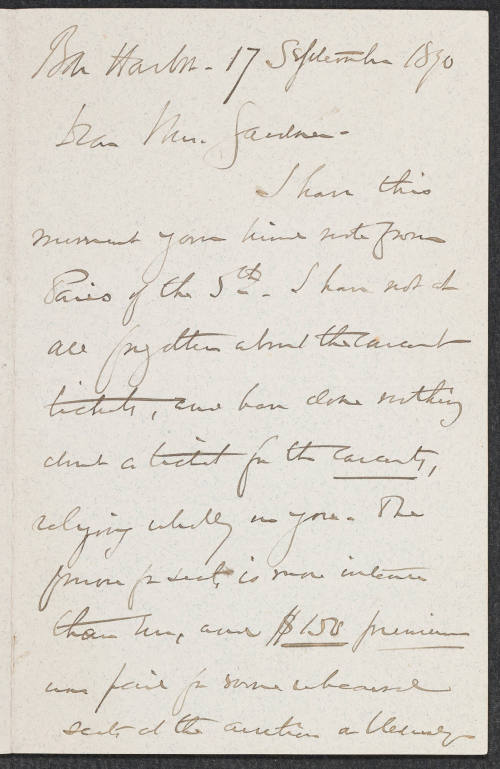 Bar Harbor - 17 September 1890
Dear Mrs. Gardner -
I have this
moment your kind note from
Paris of the 5th. - I have not at
all forgotten about the concert
tickets, and have done nothing
about a ticket for the concerts,
relying wholly on you. The
furore for seats is more intense
than ever, and $150 premium
was paid for some rehearsal
seats at the auction on Wednesday